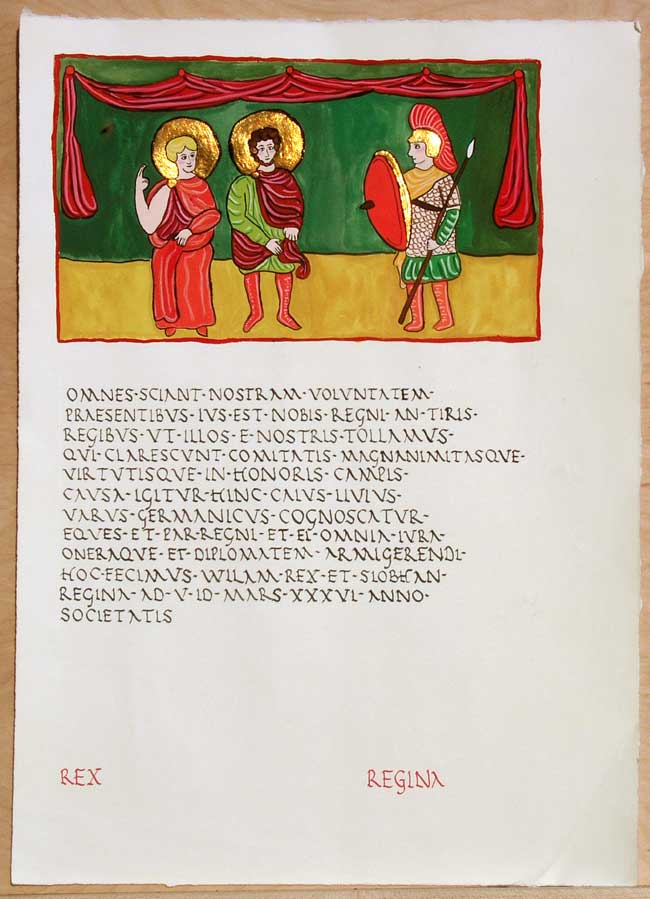 OMNES·SCIANT·NOSTRAM·VOLVNTATEM·
PRAESENTIBVS·IVS·EST·NOBIS·REGNI·AN·TIRIS·
REGIBVS·VT·ILLOS·E·NOSTRIS·TOLLAMVS·
QVI·CLARESCVNT·COMITATIS·MAGNANIMITASQVE·
VIRTVTISQVE·IN·HONORIS·CAMPIS·
CAVSA·IGITVR·HINC·CAIVS·LIVIVS·
VARVS·GERMANICVS·COGNOSCATVR·
EQVES·ET·PAR·REGNI·ET·EI·OMNIA·IVRA·
ONERAQVE·ET·DIPLOMATEM·ARMIGERENDI·
HOC·FECIMVS·WILAM·REX·ET·SIOBHAN·
REGINA·AD·V·ID·MARS·XXXVI·ANNO·
SOCIETATIS
REX REGINA